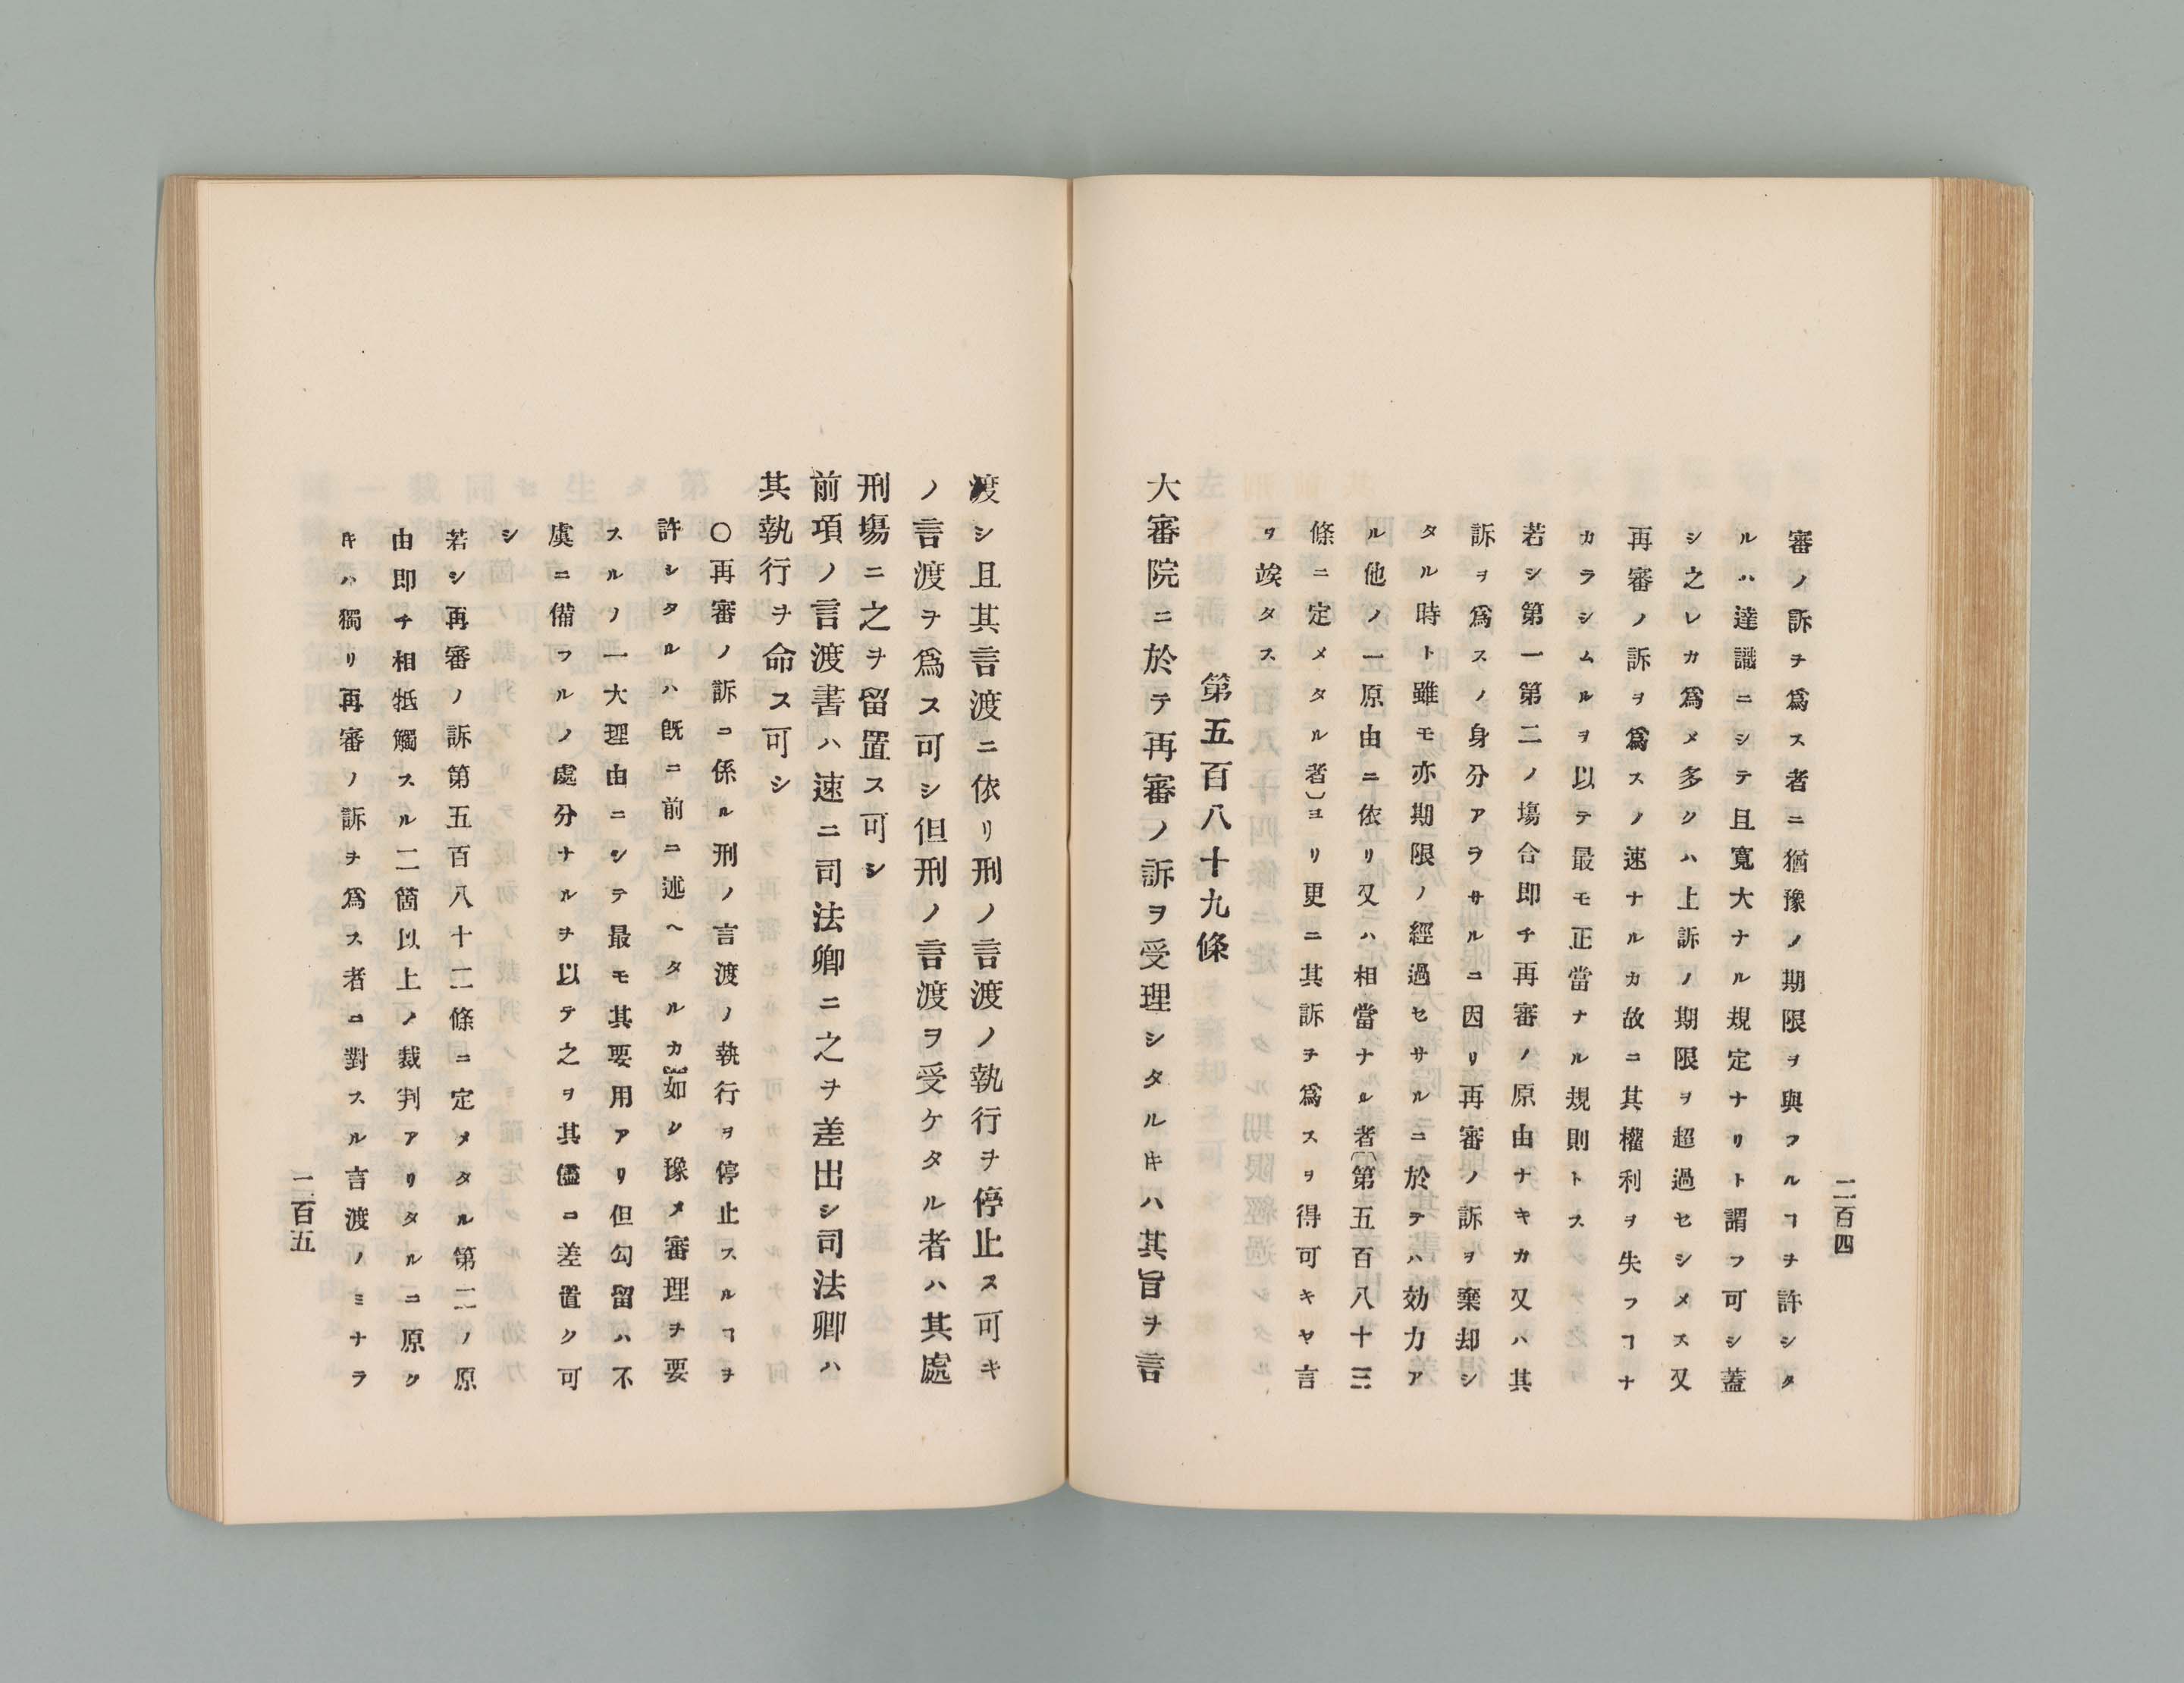 審ノ訴ヲ爲ス者ニ猶豫ノ期限ヲ與フルヿヲ許シタ
ルハ達識ニシテ且寛大ナル規定ナリト謂フ可シ蓋
シ之レカ爲メ多クハ上訴ノ期限ヲ超過セシメス又
再審ノ訴ヲ爲スノ速ナルカ故ニ其權利ヲ失フヿナ
カラシムルヲ以テ最モ正當ナル規則トス
若シ第一第二ノ塲合即チ再審ノ原由ナキカ又ハ其
訴ヲ爲スノ身分アラサルニ因リ再審ノ訴ヲ棄却シ
タル時ト雖モ亦期限ノ經過セサルニ於テハ効力ア
ル他ノ一原由ニ依リ又ハ相當ナル者(第五百八十三
條ニ定メタル者)ヨリ更ニ其訴ヲ爲スヲ得可キヤ言
ヲ竢タス
第五百八十九條
大審院ニ於テ再審ノ訴ヲ受理シタルキハ其旨ヲ言
二百四
渡シ且其言渡ニ依リ刑ノ言渡ノ執行ヲ停止ス可キ
ノ言渡ヲ爲ス可シ但刑ノ言渡ヲ受ケタル者ハ其處
刑塲ニ之ヲ留置ス可シ
前項ノ言渡書ハ速ニ司法卿ニ之ヲ差出シ司法卿ハ
其執行ヲ命ス可シ
〇再審ノ訴ニ係ル刑ノ言渡ノ執行ヲ停止スルヿヲ
許シタルハ既ニ前ニ述ヘタルカ如シ豫メ審理ヲ要
スルノ一大理由ニシテ最モ其要用アリ但勾留ハ不
虞ニ備フルノ處分ナルヲ以テ之ヲ其儘ニ差置ク可
シ
若シ再審ノ訴第五百八十二條ニ定メタル第二ノ原
由即チ相牴觸スル二箇以上ノ裁判アリタルニ原ク
キハ獨リ再審ノ訴ヲ爲ス者ニ對スル言渡ノミナラ
二百五